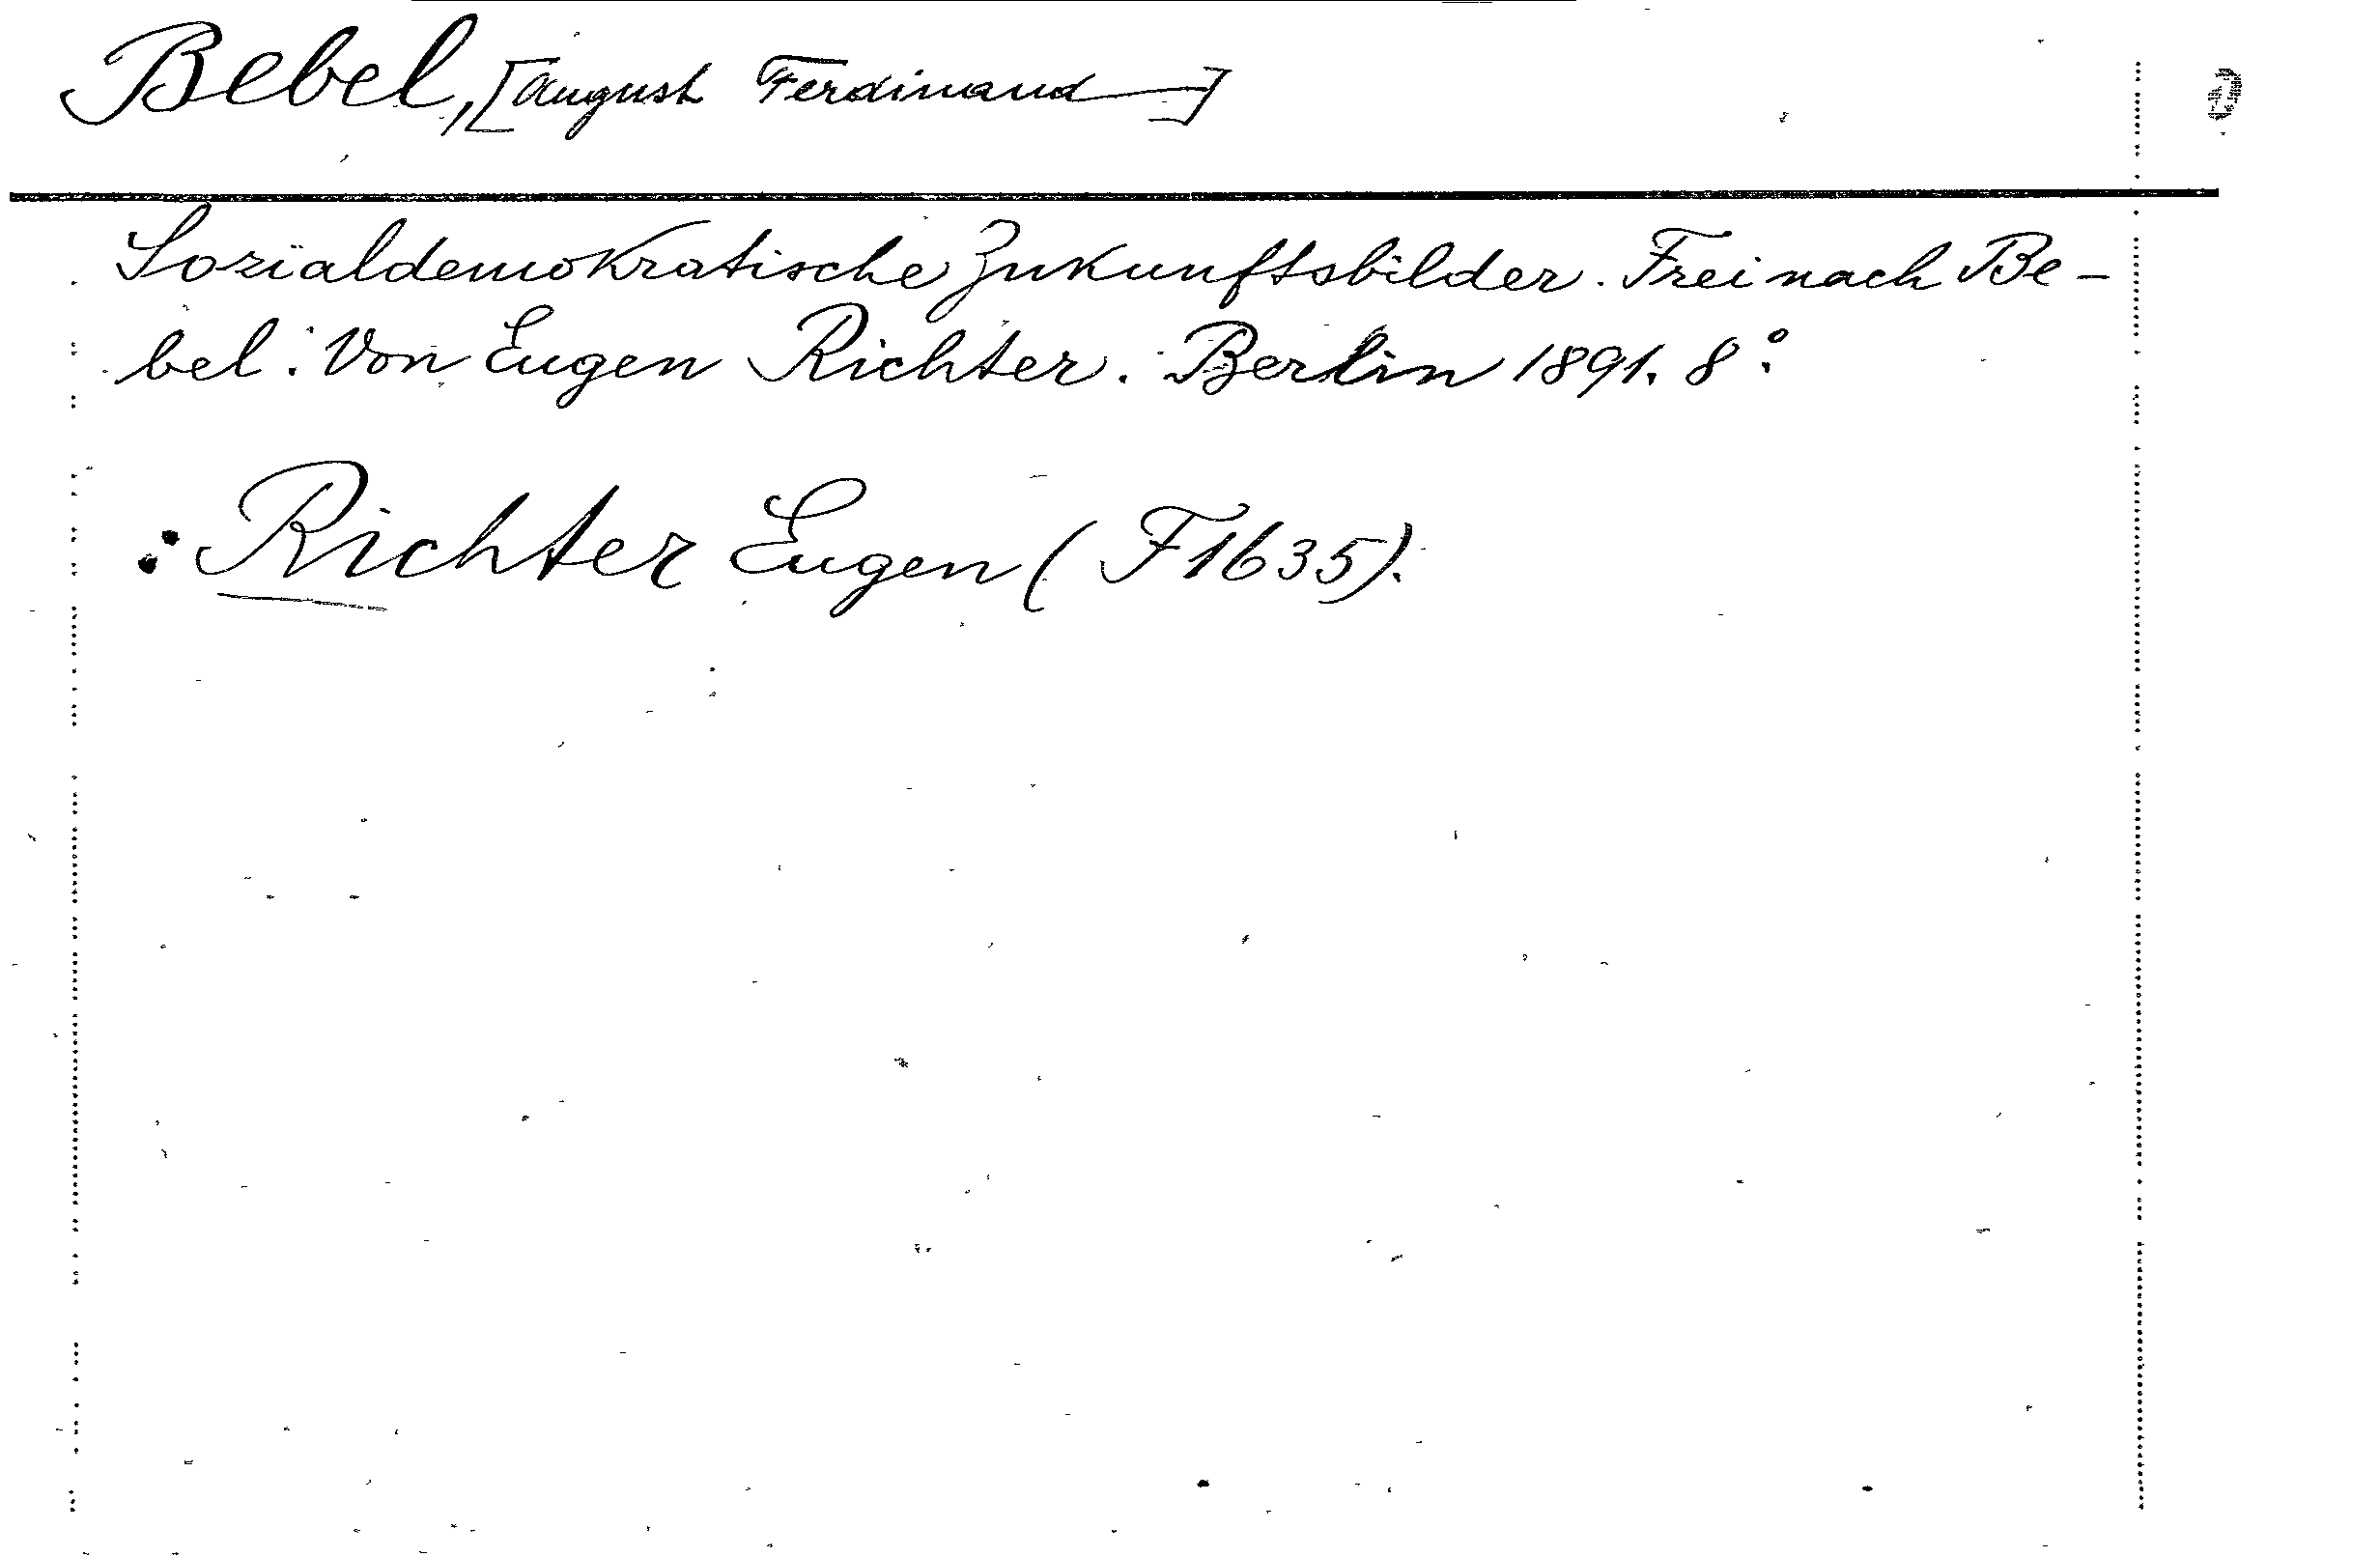 Bebel, [August Ferdinand]
Sozialdemokratische Zukunftsbilder. Frei nach Be-
bel. Von Eugen Richter. Berlin 1891. 8°.
: Richter Eugen (F1635).